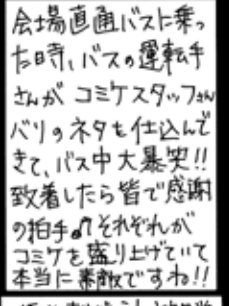 会場直通バスに乗っ
た時、バスの運転手
さんがコミケスタッフさん
バリのネタを仕込んで
きて、バス中大爆笑!!
致着したら皆で感謝
の拍手♫それぞれが
コミケを盛り上げていて
本当に素敵ですね!!